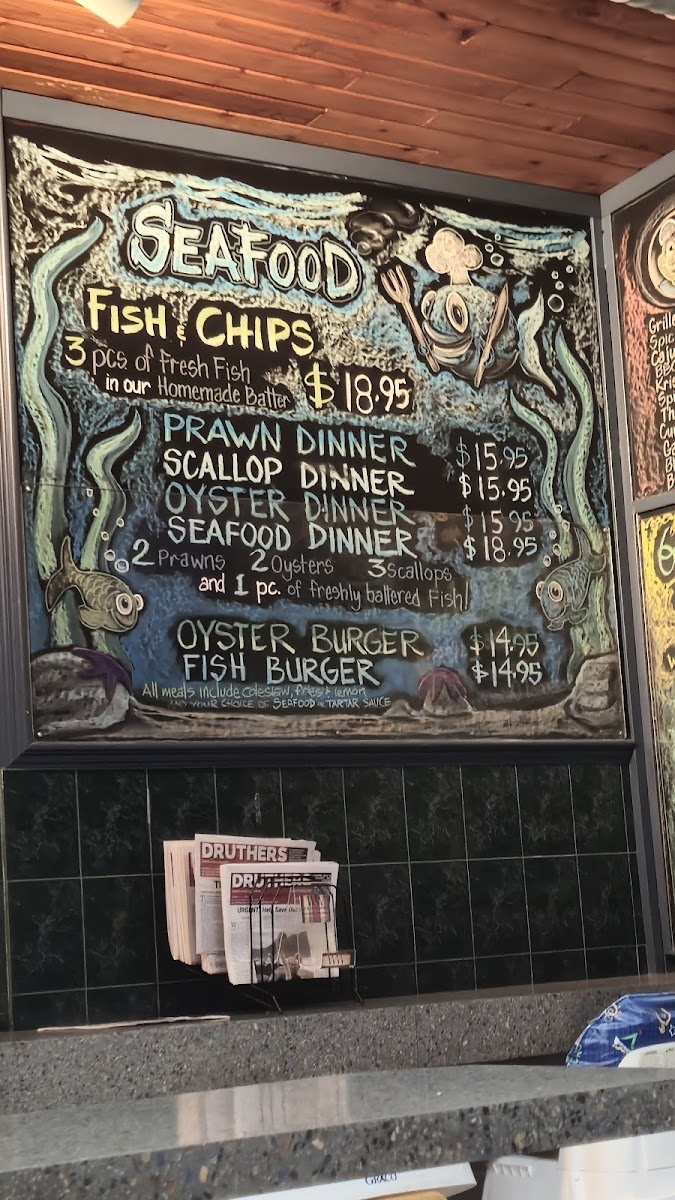 SEAFOOD
FISH & CHIPS
3 pcs of fresh Fish
in our Homemade Batter $18.95
PRAWN DINNER $15.95
SCALLOP DINNER $15.95
OYSTER DINNER $15.95
SEAFOOD DINNER $18.95
2 Prawns 2 Oysters 3 scallops
and 1 pc. of freshly battered Fish!
OYSTER BURGER $14.95
FISH BURGER $14.95
All meals include coleslaw, fries & lemon
AND YOUR CHOICE OF SEAFOOD OR TARTAR SAUCE
Grille
Spic
Caju
DRUTHERS
DRUTHERS
GRACO